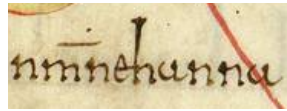 nm̄nehanna